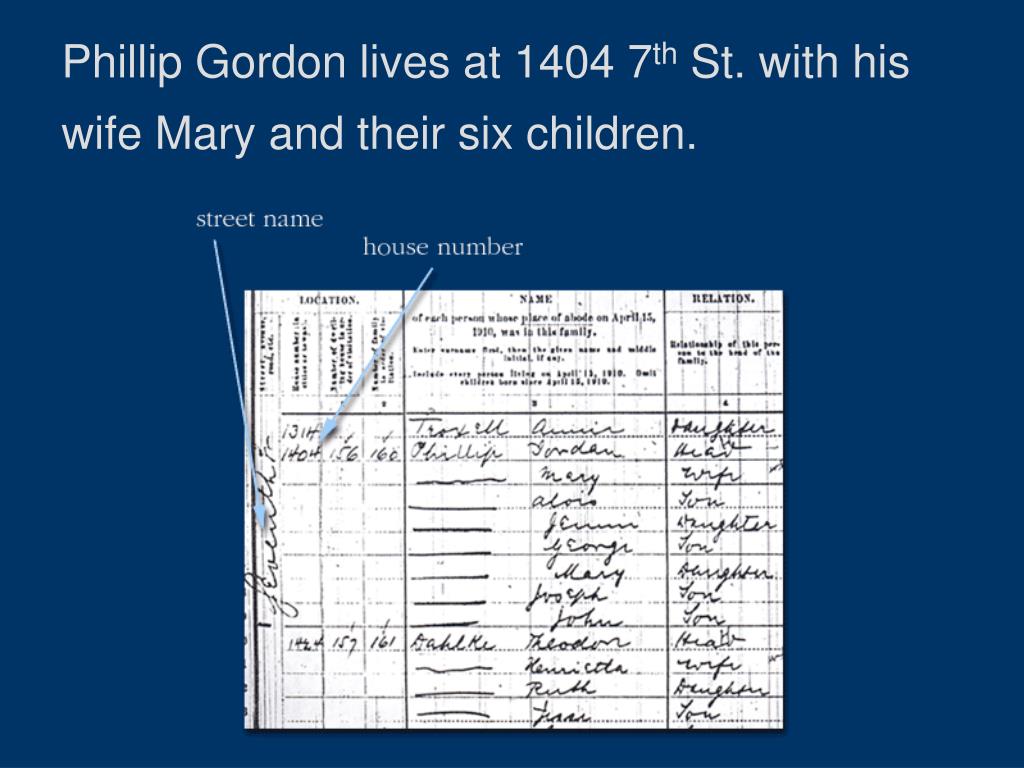 Phillip Gordon lives at 1404 7th St. with his
wife Mary and their six children.
street name
house number
LOCATION. NAME RELATION.
of each person whose place of abode on April 15,
1910, was in this family.
Enter surname first, then the given name and middle
initial, if any.
Include every person living on April 15, 1910. Omit
children born since April 15, 1910.
Relationship of this per-
son to the head of the
family.
Street, avenue,
road, etc.
House number
Number of family
2 3 4
Seventh
1314 Troxell Annie Daughter
1404 156 160 Phillip Gordan Head
Mary Wife
Alois Son
Jennie Daughter
George Son
Mary Daughter
Joseph Son
John Son
1424 157 161 Dahlke Theodor Head
Henrietta Wife
Ruth Daughter
Son